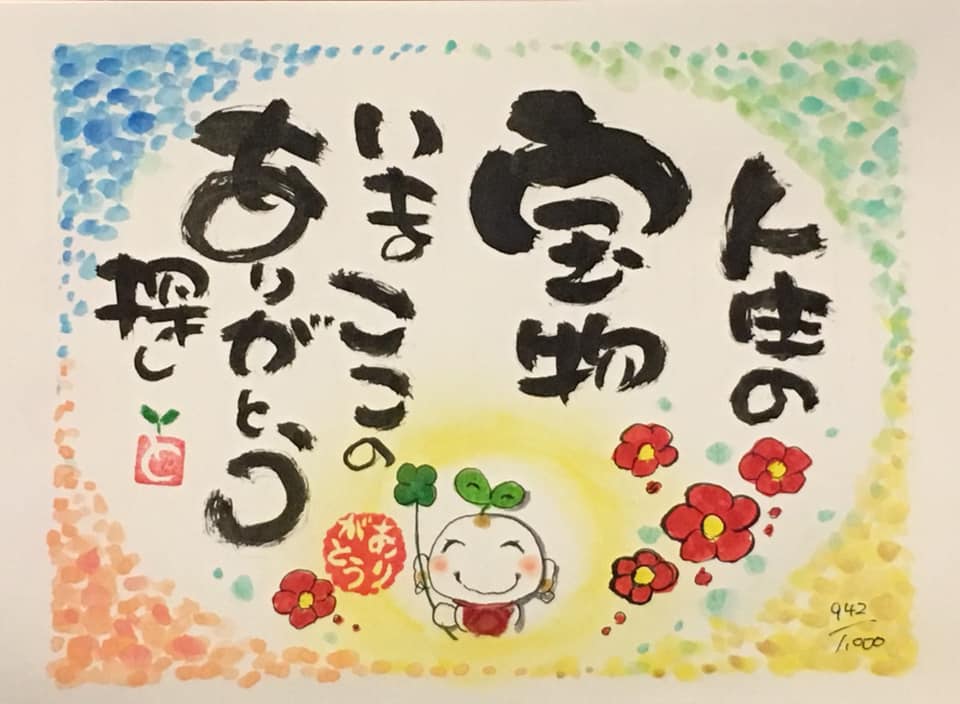 人生の
宝物
いまここの
ありがとう
探し
と
ありがとう
942/1,000